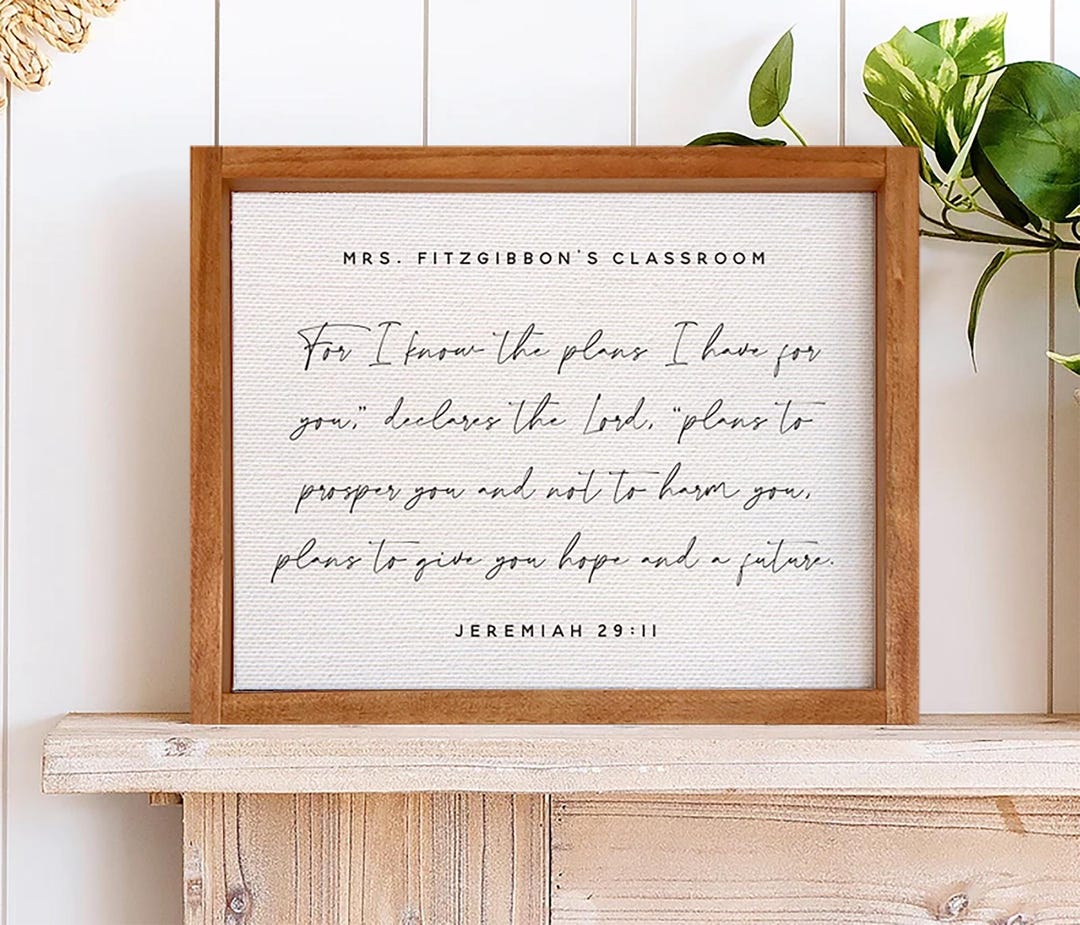 MRS. FITZGIBBON'S CLASSROOM
For I know the plans I have for
you," declares the Lord, "plans to
prosper you and not to harm you,
plans to give you hope and a future.
JEREMIAH 29:11